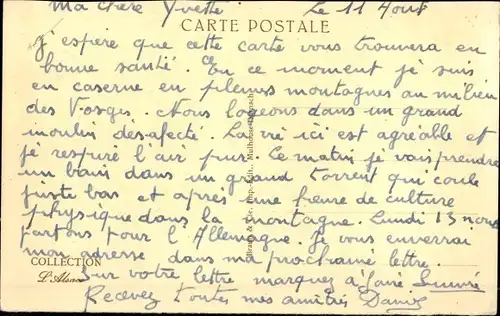 Ma chère Yvette Le 11 Aout
CARTE POSTALE
J'espere que cette carte vous trouvera en
bonne santé. En ce moment je suis
en caserne en pleines montagnes au milieu
des Vosges. Nous logeons dans un grand
moulin desafecté. La vie ici est agréable et
je respire l'air pur. Le matin je vais prendre
un bain dans un grand torrent qui coule
juste bas et après une heure de culture
physique dans la montagne. Lundi 13 nous
partons pour l'Allemagne. Je vous enverrai
mon adresse dans ma prochaine lettre.
COLLECTION
L'Alsace
Sur votre lettre marquez à faire Suivre
Recevez toutes mes amitiés
& Cie, Imp.-Edit., Mulhouse-Dornach